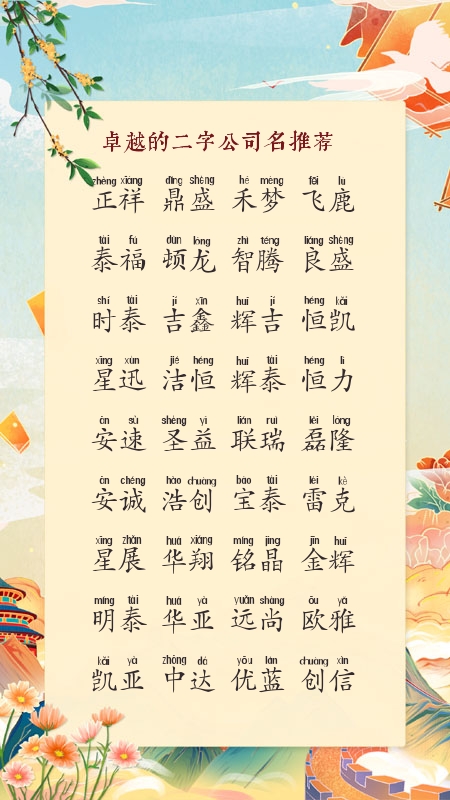 卓越的二字公司名推荐
zhèng xiáng dǐng shèng hé mèng fēi lù
正祥 鼎盛 禾梦 飞鹿
tài fú dùn lóng zhì téng liáng shèng
泰福 顿龙 智腾 良盛
shí tài jí xīn huī jí héng kǎi
时泰 吉鑫 辉吉 恒凯
xīng xùn jié héng huī tài héng lì
星迅 洁恒 辉泰 恒力
ān sù shèng yì lián ruì lěi lóng
安速 圣益 联瑞 磊隆
ān chéng hào chuàng bǎo tài léi kè
安诚 浩创 宝泰 雷克
xīng zhǎn huá xiáng míng jīng jīn huī
星展 华翔 铭晶 金辉
míng tài huá yà yuǎn shàng ōu yǎ
明泰 华亚 远尚 欧雅
kǎi yà zhōng dá yōu lán chuàng xìn
凯亚 中达 优蓝 创信